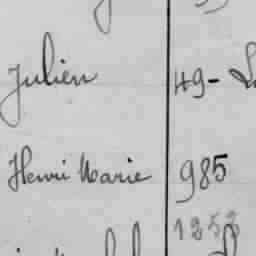 Julien 49-
Henri Marie 985
1253